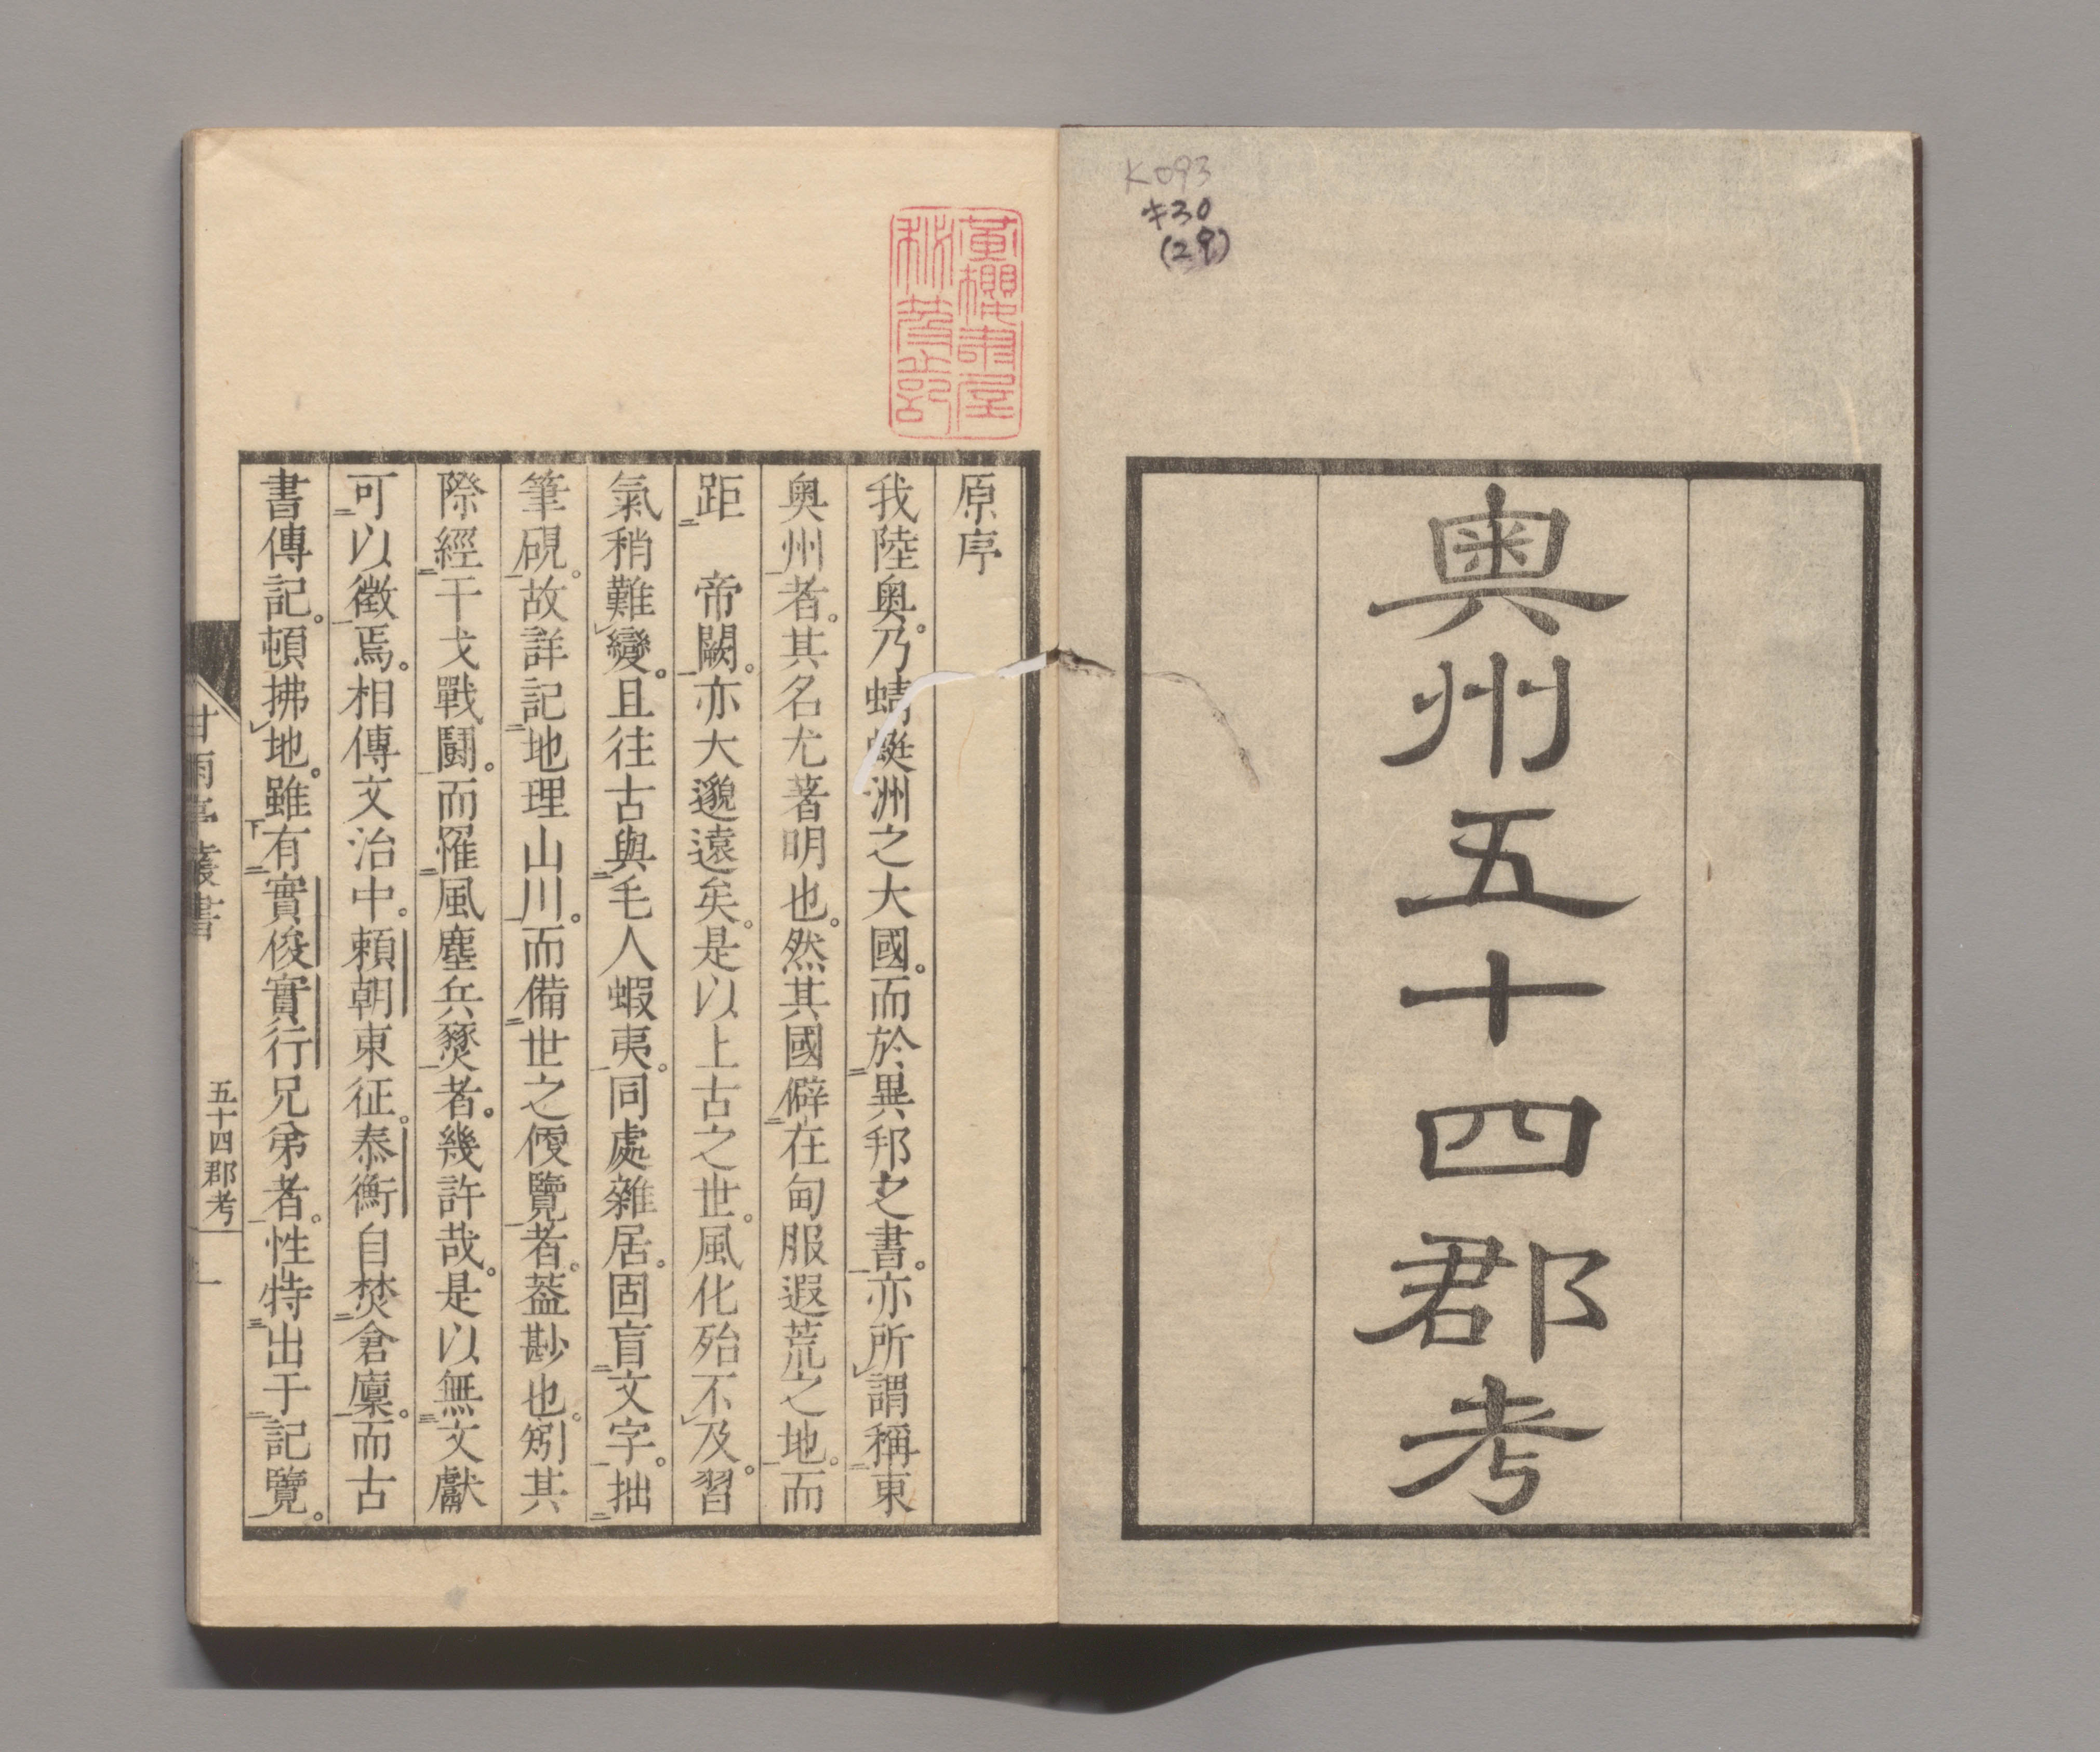 K093
キ30
(29)
奥州五十四郡考
原序
我陸奥。乃蜻蜓洲之大國。而於異邦之書。亦所謂稱東
奥州者。其名尤著明也。然其國僻在甸服遐荒之地。而
距　帝闕。亦大邈遠矣。是以上古之世。風化殆不及。習
氣稍難變。且往古與毛人蝦夷。同處雜居。固盲文字。拙
筆硯。故詳記地理山川。而備世之便覽者。蓋尠也。矧其
際經干戈戰鬪。而罹風塵兵燹者。幾許哉。是以無文獻
可以徵焉。相傳文治中。頼朝東征。泰衡自焚倉廩。而古
書傳記。頓拂地。雖有實俊實行兄弟者。性特出于記覽。
甘雨亭叢書
五十四郡考
一